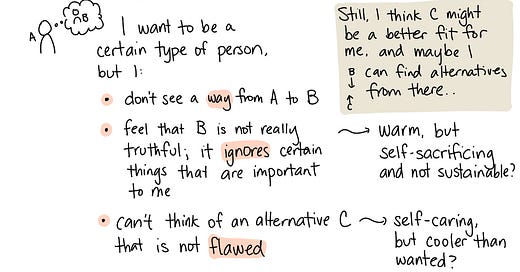 A
B
I want to be a
certain type of person,
but I:
• don't see a way from A to B
• feel that B is not really
truthful; it ignores certain
things that are important
to me
→ warm, but
self-sacrificing
and not sustainable?
• can't think of an alternative C
that is not flawed
→ self-caring,
but cooler than
wanted?
Still, I think C might
be a better fit for
me, and maybe I
B ↓ C can find alternatives
from there..